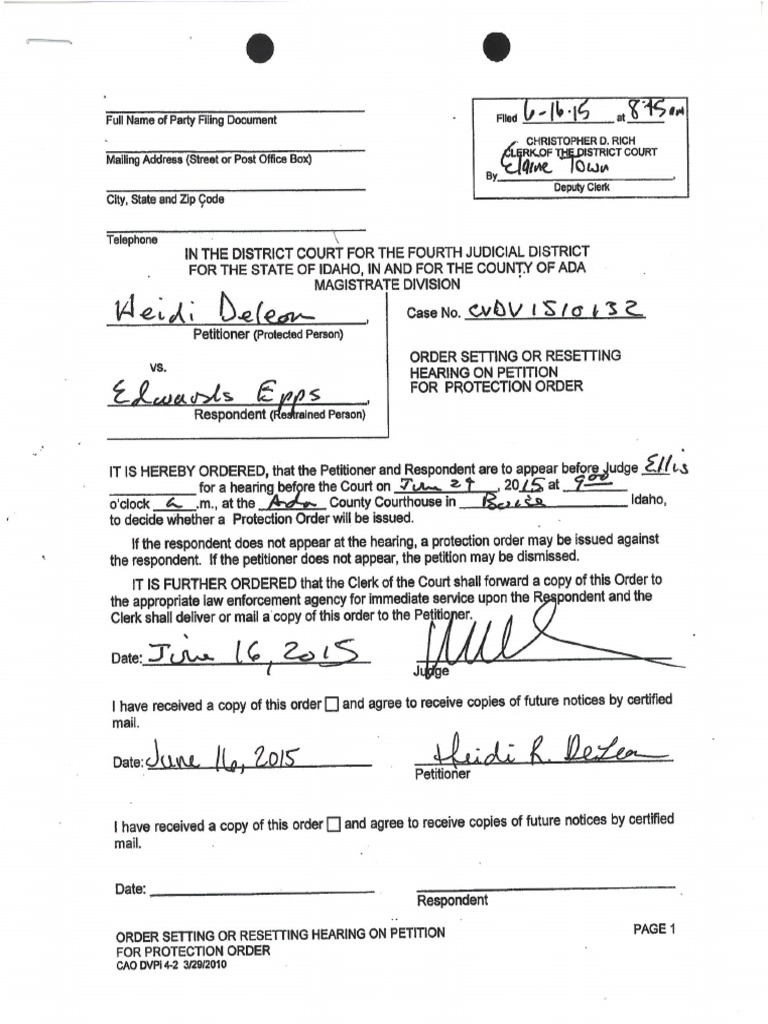 Full Name of Party Filing Document
Mailing Address (Street or Post Office Box)
City, State and Zip Code
Telephone
Filed 6-16-15 at 8:45 AM
CHRISTOPHER D. RICH
CLERK OF THE DISTRICT COURT
By Elaine Town
Deputy Clerk
IN THE DISTRICT COURT FOR THE FOURTH JUDICIAL DISTRICT
FOR THE STATE OF IDAHO, IN AND FOR THE COUNTY OF ADA
MAGISTRATE DIVISION
Heidi Deleon,
Petitioner (Protected Person)
vs.
Edwards Epps,
Respondent (Restrained Person)
Case No. CVDV1510132
ORDER SETTING OR RESETTING
HEARING ON PETITION
FOR PROTECTION ORDER
IT IS HEREBY ORDERED, that the Petitioner and Respondent are to appear before Judge Ellis
for a hearing before the Court on June 29, 2015 at 9:00
o'clock a .m., at the Ada County Courthouse in Boise Idaho,
to decide whether a Protection Order will be issued.
If the respondent does not appear at the hearing, a protection order may be issued against
the respondent. If the petitioner does not appear, the petition may be dismissed.
IT IS FURTHER ORDERED that the Clerk of the Court shall forward a copy of this Order to
the appropriate law enforcement agency for immediate service upon the Respondent and the
Clerk shall deliver or mail a copy of this order to the Petitioner.
Date: June 16, 2015
Judge
I have received a copy of this order ☐ and agree to receive copies of future notices by certified
mail.
Date: June 16, 2015 Heidi R. DeLeon
Petitioner
I have received a copy of this order ☐ and agree to receive copies of future notices by certified
mail.
Date:
Respondent
ORDER SETTING OR RESETTING HEARING ON PETITION PAGE 1
FOR PROTECTION ORDER
CAO DVPi 4-2 3/29/2010